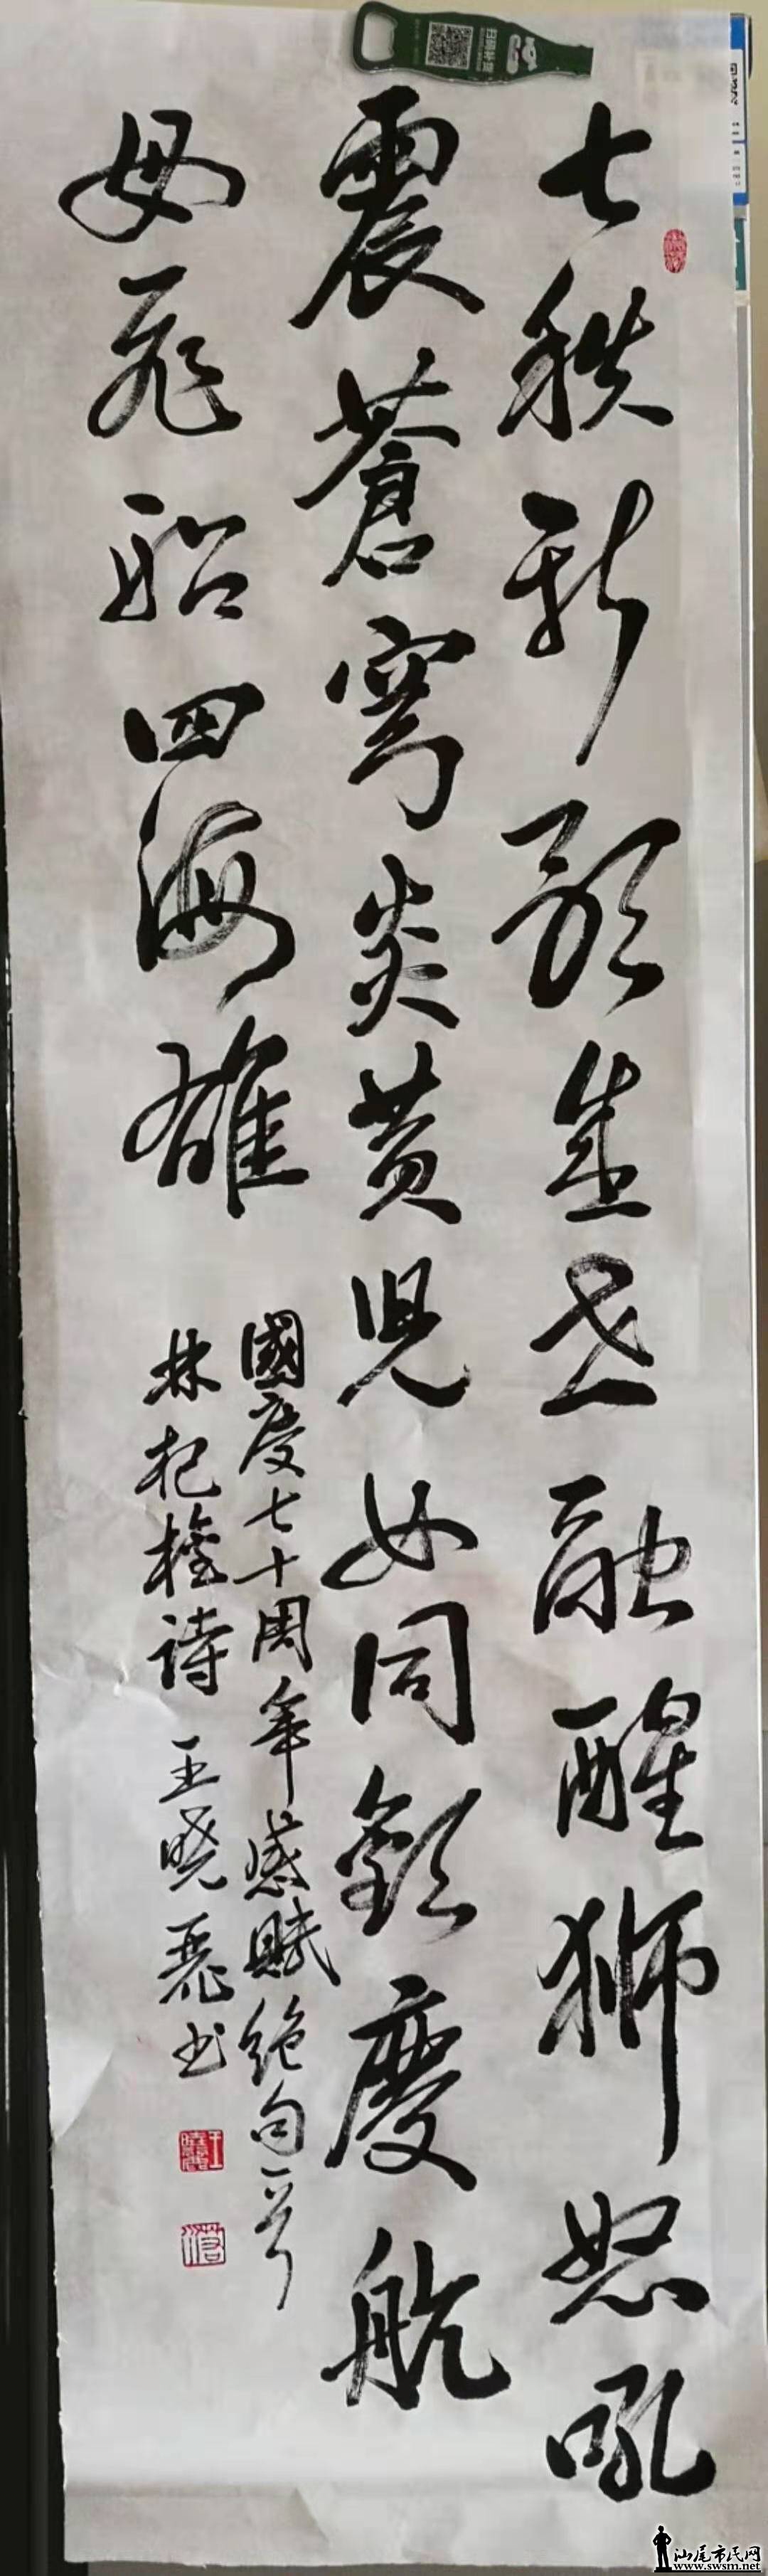 七秩新歌盛世融醒狮怒吼
震蒼穹炎黄児女同歡慶航
母飛船四海雄
國慶七十周年感賦绝句一首
林杞權诗 王晓麗书
汕尾市民网
www.swsm.net